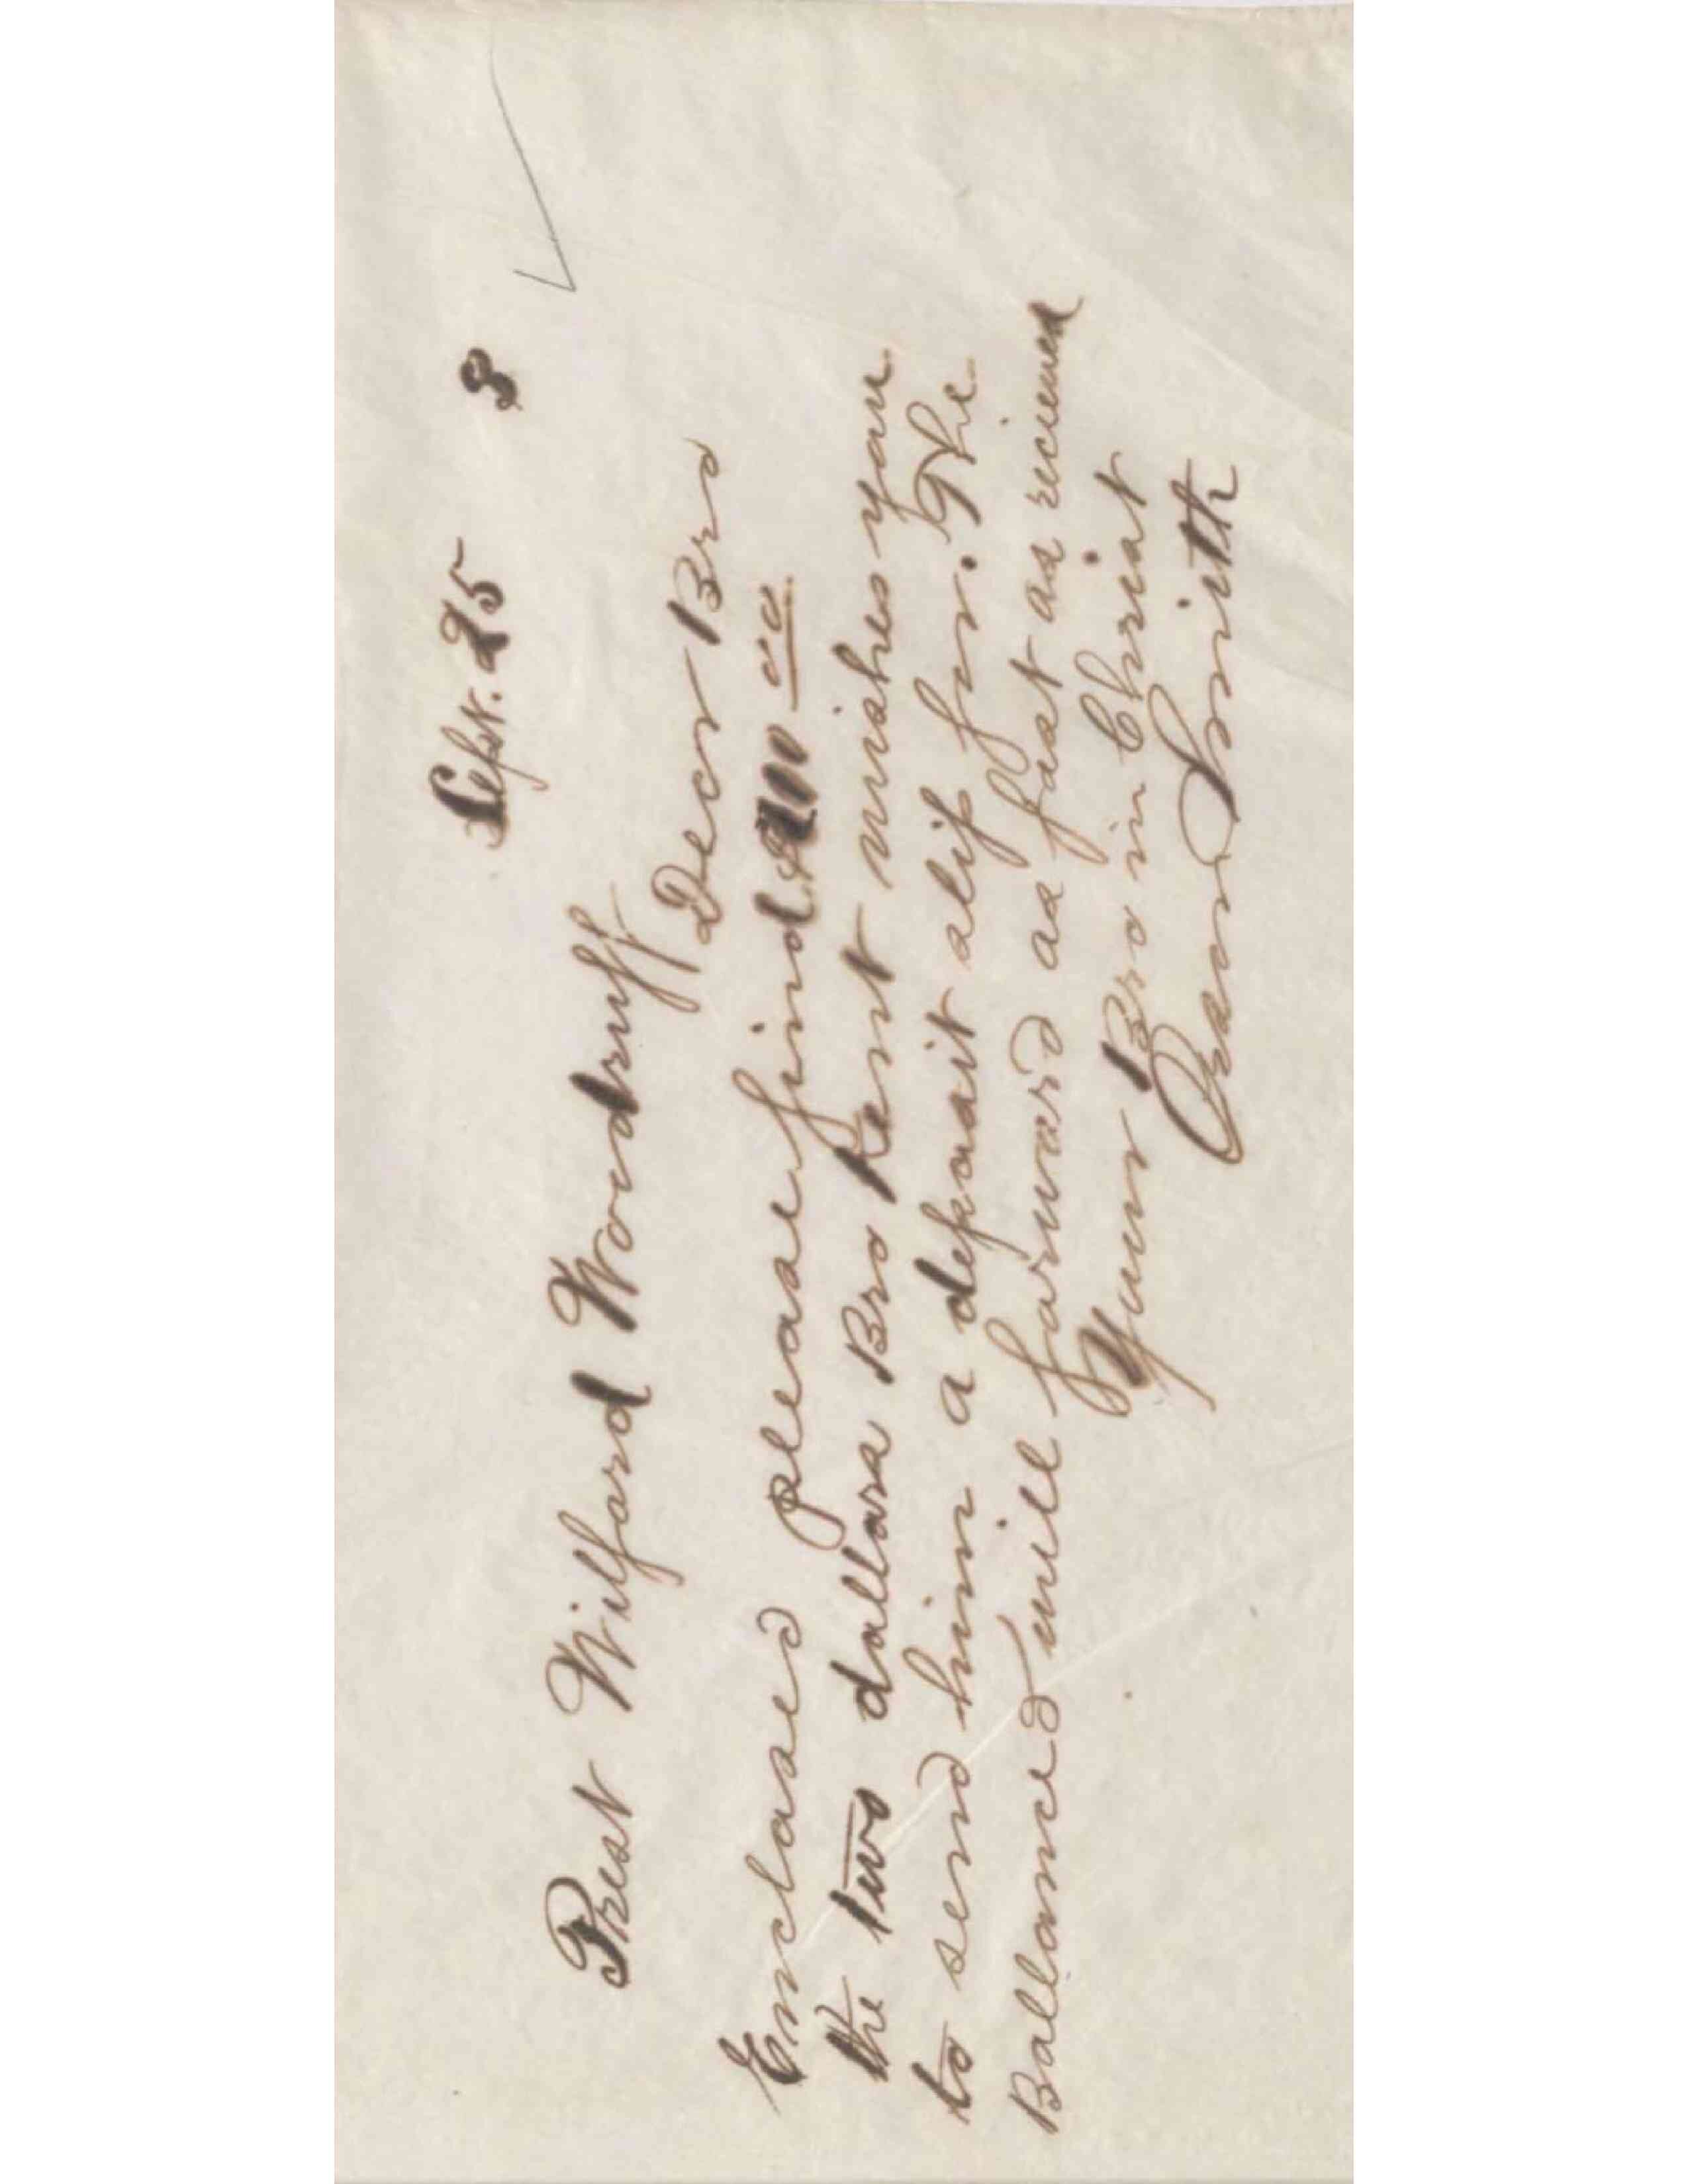 Sept. 25 3
Prest Wilford Woodruff
Dear Bro
Enclosed please find
the two dollars Bro Kent wishes you
to send him a deposit slip for. The
Ballanced will forward as fast as recieved
Your Bro in Christ
Smith